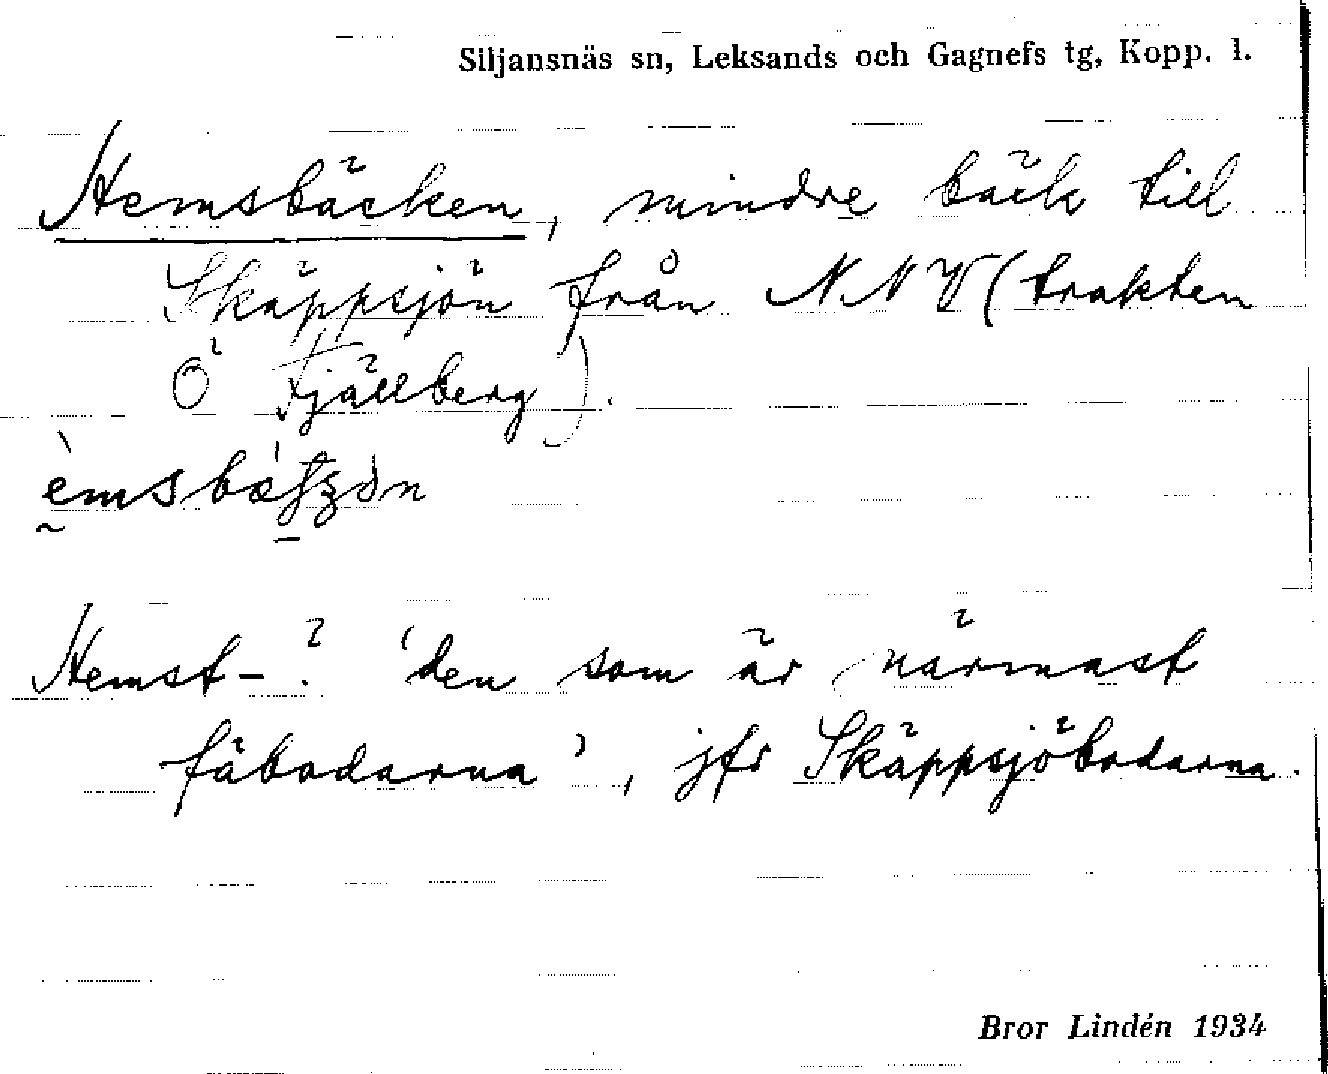 Siljansnäs sn, Leksands och Gagnefs tg, Kopp. l.
Hemsbäcken, mindre bäck till
Skäppsjön från NNV (trakten
Ö Fjällberg).
Hemst-? 'den som är närmast
fäbodarna', jfr Skäppsjöbodarna.
Bror Lindén 1934